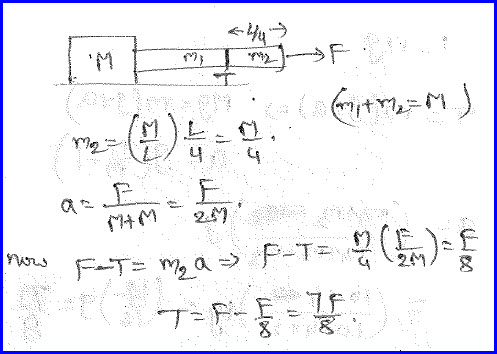 ←L/4→
M m₁ m₂ → F
T
(m₁+m₂=M)
m₂=(M/L) L/4 = M/4.
a= F/(M+M) = F/2M.
now F-T= m₂a ⇒ F-T= M/4 (F/2M)= F/8
T= F- F/8 = 7F/8.